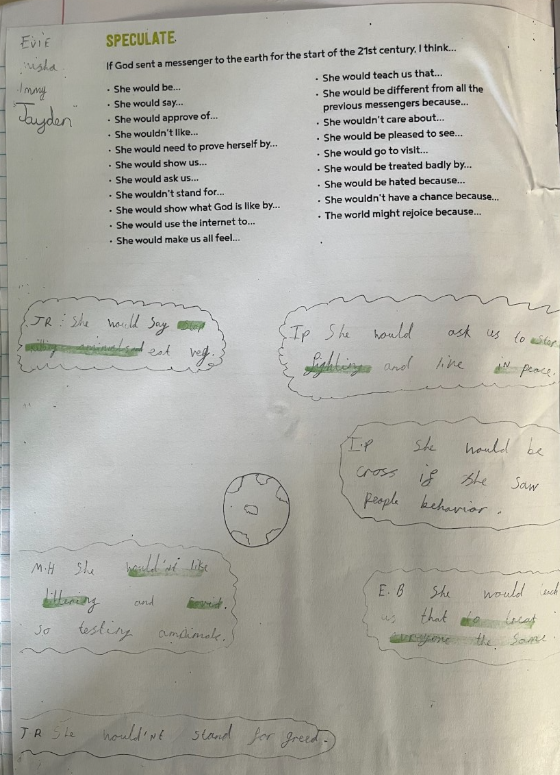 Evie
SPECULATE
nisha
If God sent a messenger to the earth for the start of the 21st century, I think...
Immy
"Jayden"
· She would be...
· She would say...
· She would approve of...
· She wouldn't like...
· She would need to prove herself by...
· She would show us...
· She would ask us...
· She wouldn't stand for...
· She would show what God is like by...
· She would use the internet to...
· She would make us all feel...
· She would teach us that...
· She would be different from all the
previous messengers because...
· She wouldn't care about...
· She would be pleased to see...
· She would go to visit...
· She would be treated badly by...
· She would be hated because...
· She wouldn't have a chance because...
· The world might rejoice because...
JR: She would say stop
killing animals and eat veg.
Ip She would ask us to stop
fighting and live in peace.
I.P She would be
cross if she saw
people behavior.
M.H She would'nt like
littering and
so testing
E.B She would teach
us that to treat
everyone the same
JR She would'nt stand for greed.